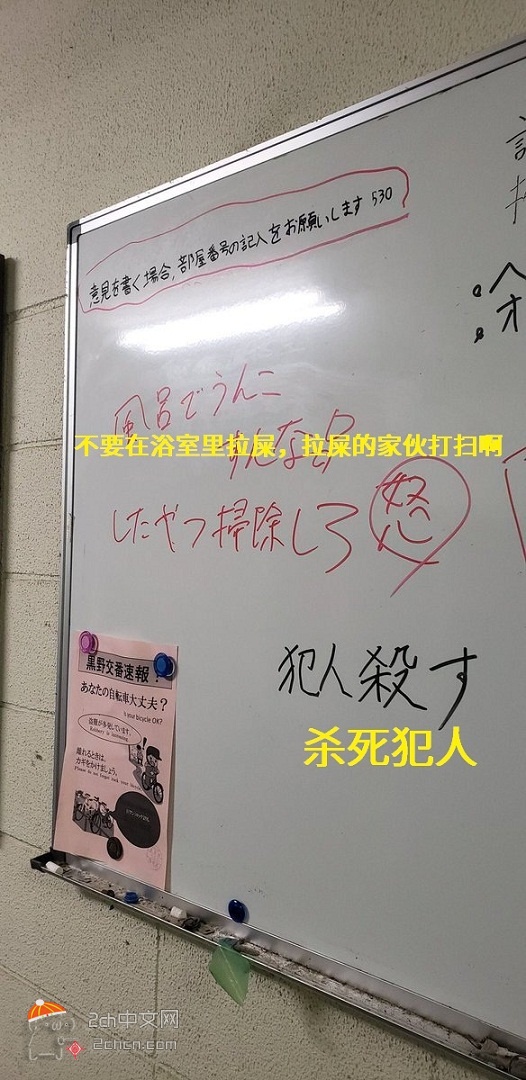 意見を書く場合,部屋番号の記入をお願いします 530
風呂でうんこ
すんなよ
不要在浴室里拉屎，拉屎的家伙打扫啊
したやつ掃除しろ 怒
犯人殺す
杀死犯人
黒野交番速報!
あなたの自転車大丈夫?
Is your bicycle OK?
盗難が多発しています。
Robbery is increasing.
離れるときは、
カギをかけましょう。
Please do not forget lock your bicycle
2ch中文网
2chcn.com